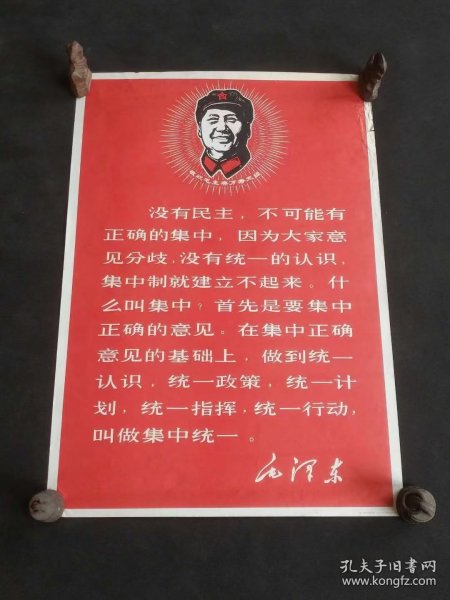 敬祝毛主席万寿无疆
没有民主，不可能有
正确的集中，因为大家意
见分歧，没有统一的认识，
集中制就建立不起来。什
么叫集中？首先是要集中
正确的意见。在集中正确
意见的基础上，做到统一
认识，统一政策，统一计
划，统一指挥，统一行动，
叫做集中统一。
毛泽东
孔夫子旧书网
www.kongfz.com